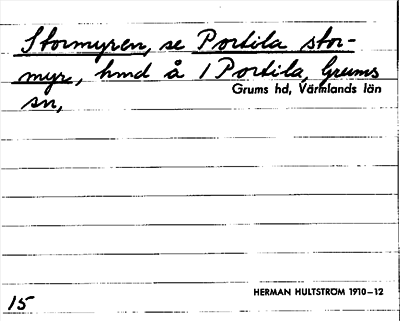 Stormyren, se Portila stor-
myr, hmd å 1 Portila, Grums
Grums hd, Värmlands län
sn,
HERMAN HULTSTRÖM 1910–12
15